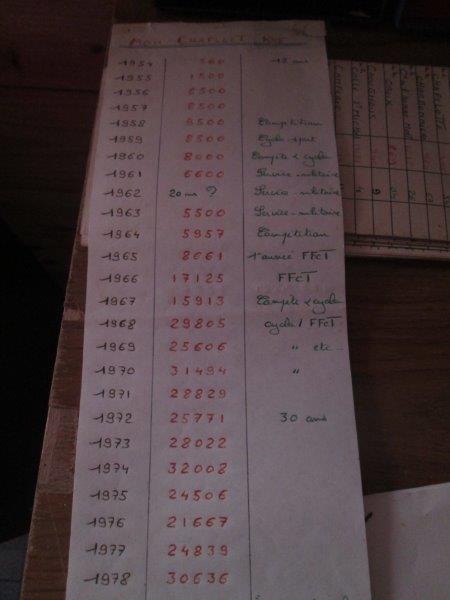 MON CHAPELET
1954 560 12 ans
1955 1500
1956 8500
1957 8500
1958 9500 Compétition
1959 8500 Cyclo-sport
1960 8000 Compète & cyclo
1961 6600 Service militaire
1962 20 ans ? Service-militaire
1963 5500 Service-militaire
1964 5957 Compétition
1965 8061 1° année FFCT
1966 17125 FFCT
1967 15913 Compète & cyclo
1968 29805 cyclo / FFCT
1969 25606 " etc...
1970 31494 "
1971 28829
1972 25771 30 ans
1973 28022
1974 32008
1975 24506
1976 21667
1977 24839
1978 30636